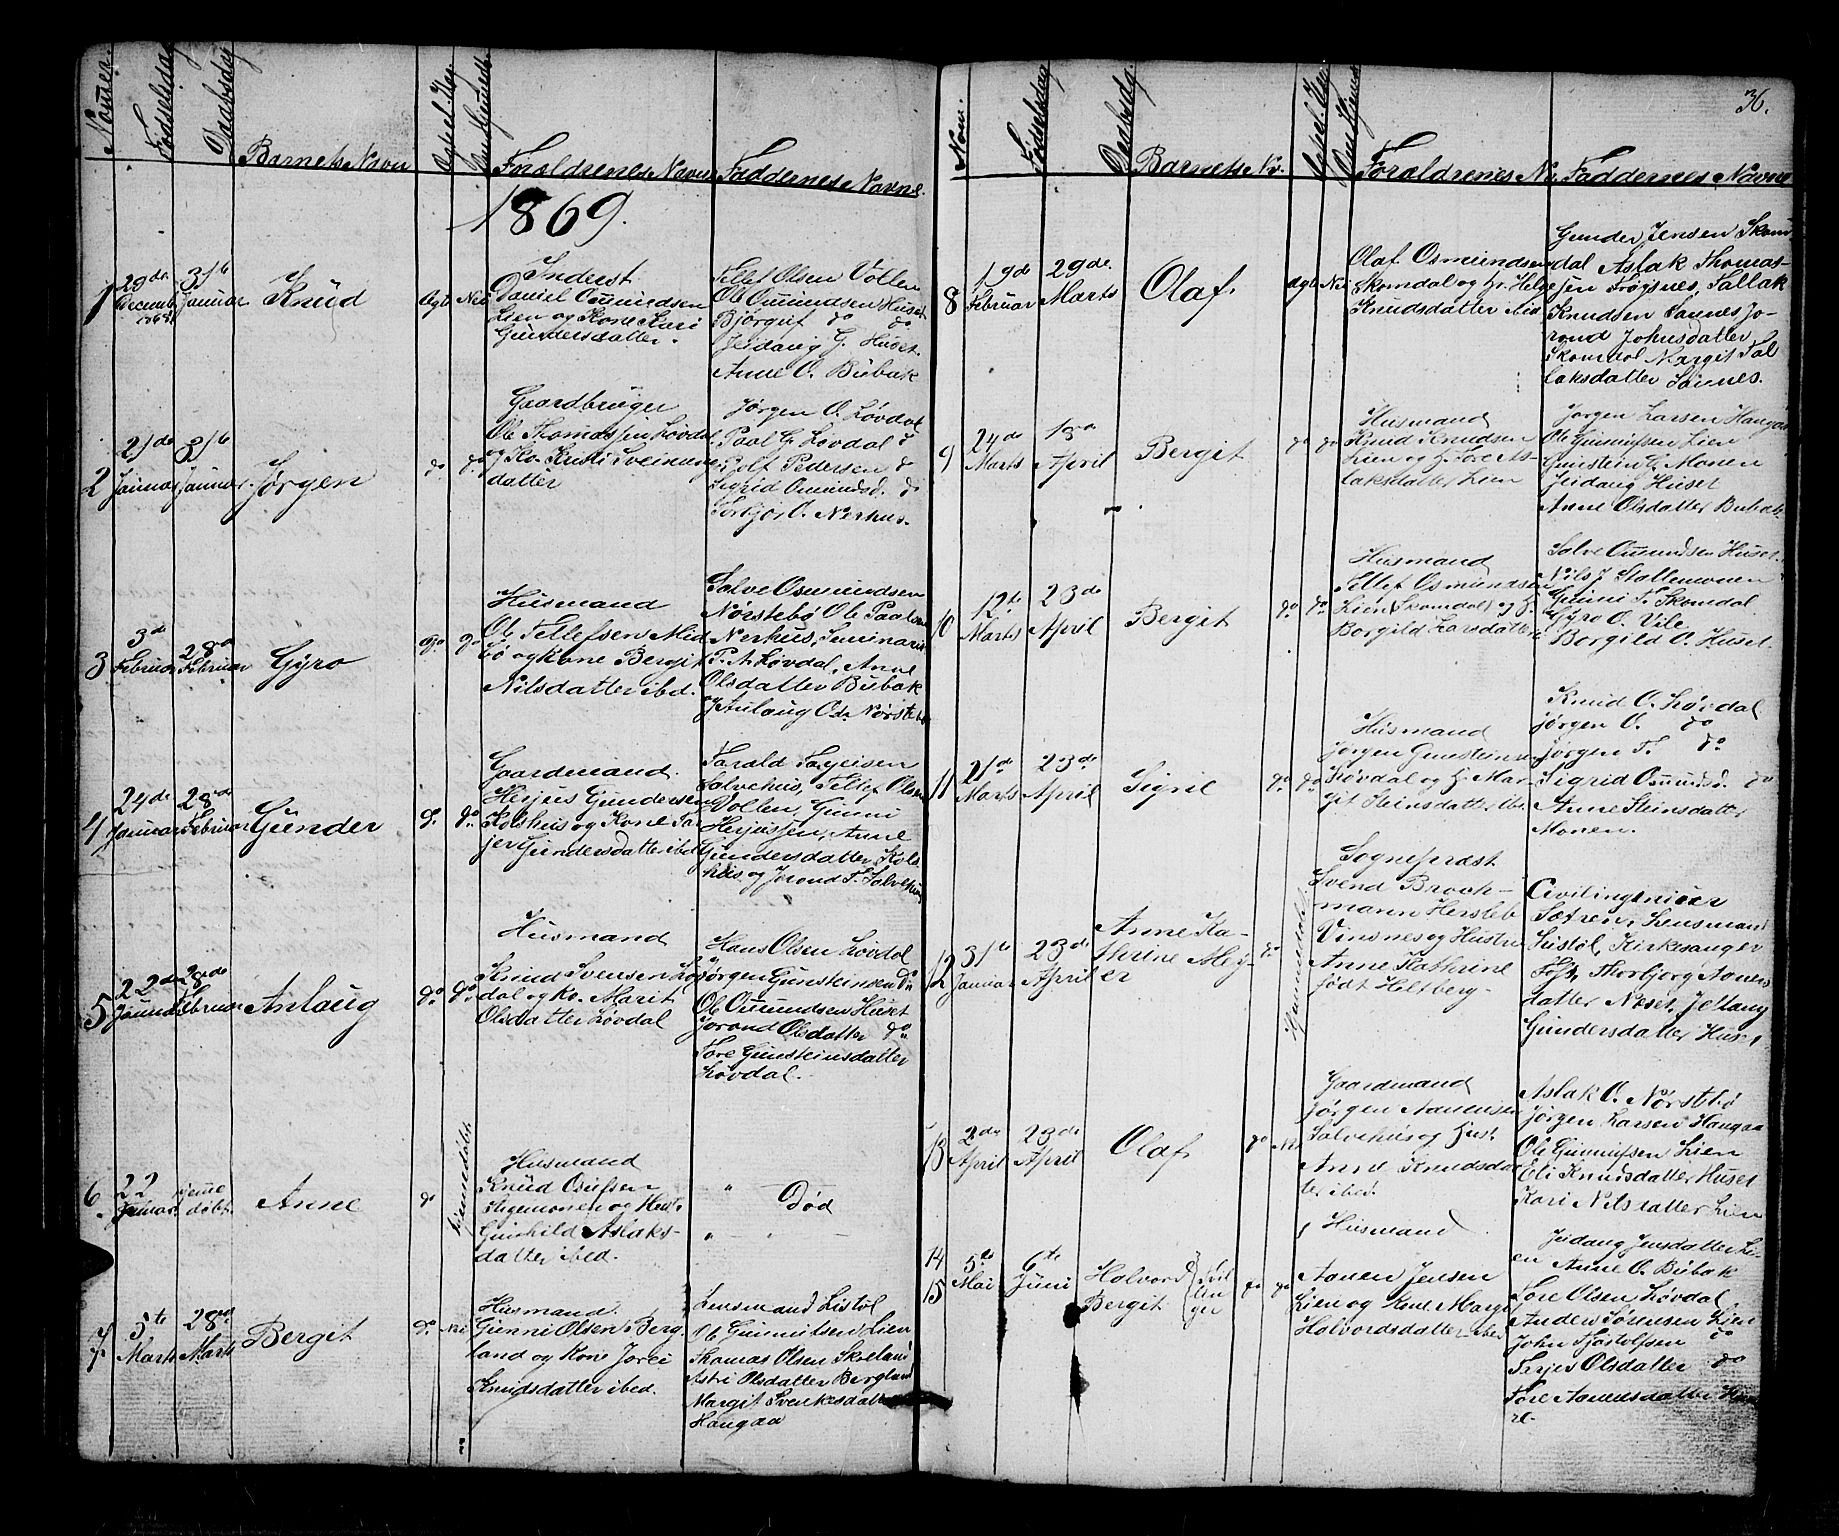 Nomer. Fødselsdag Daabsdag Barnets Navn Forældrenes Navn Faddernes Navne.
1869.
1
29de December 1868
31te Januar
Knud
Ægte
Inderst
Daniel Omundsen
Lien og Kone Kari
Gundersdatter.
Tellef Olsen Vollen
Ole Omundsen Huset
Bjørguf do do
Jeidang G. Huset.
Anne O. Bubak
2
21de Januar
31te Januar
Jørgen
do
do
Gaardbruger
Ole Thomassen Løvdal
datter
Jørgen O. Løvdal
Paal G. Løvdal do
Rolf Pedersen do
Sigrid Omundsd. do
Torbjor O. Nerhus.
3
3de Februar
28de Februar
Gyro
do
do
Husmand
Ole Tellefsen Mid
bø og Kone Bergit
Nilsdatter ibd.
Salve Osmundsen
Nørstebø Ole Paalsen
Nerhus, Seminarist
P. A. Løvdal, Anne
Olsdatter Bubak
og Anlaug Osd. Nørstebø
4
24de Januar
28de Februar
Gunder
do
do
Gaardmand.
Herjus Gundersen
Kolshus og Kone Tar
jer Gundersdatter ibd
Tarald Targeisen
Salvehus, Tellef Olsen
Vollen, Gunni
Herjussen, Anne
Gundersdatter Kols
hus og Jorond T. Salvehus
5
22de Januar
28de Februar
Anlaug
do
do
Husmand
Knud Svensen Løv
dal og Ko. Marit
Olsdatter Løvdal
Hans Olsen Løvdal
Jørgen Gunsteinsen do
Ole Omundsen Huset
Jorond Olsdatter do
Tore Gunsteinsdatter
Løvdal.
6.
22 Januar.
hjeme døbt.
Anne
do
Hjemedøbt
Husmand
Knud Osufsen
Stigemonen og Hust.
Gunhild Aslaks-
datter ibed.
Død
7.
5te Marts
28de Marts
Bergit
do
Nei
Husmand.
Gunni Olsen Berg
land og Kone Jorei
Knudsdatter ibed.
Lensmand Listøl
Ole Gunnufsen Lien
Thomas Olsen Skreland
Astri Olsdatter Bergland
Margit Svenkesdatter
Haugaa
36.
Nom. Fødselsdag Daabsdg. Barnets Nv. Forældrenes Nv. Faddernes Navne
8
19de Februar
29de Marts
Olaf.
Ægte
Nei
Olaf Osmundsen
Skomdal og H. Helge
Knudsdatter ibid
Gunder Jensen Skom
dal Aslak Thomas-
sen Frøysnes, Tallak
Knudsen Sannes Jo-
rond Johnsdatter
Skomdal Margit Tal
laksdatter Sannes.
9
24de Marts
13de April
Bergit
do
do
Husmand
Knud Knudsen
Lien og H. Tore As-
laksdatter Lien
Jørgen Larsen Haugaa
Ole Gunnufsen Lien
Gunstein G. Monen
Jeidang Huset
Anne Olsdatter Bubak
10
12te Marts
23de April
Bergit
do
do
Husmand
Tellef Osmundsen
Lien (Skomdal) og H.
Borgild Larsdatter
Salve Omundsen Huset.
Nils J Stallemonen
Gunni T. Skomdal
Gyro O. Vile
Borgild O. Huset.
11
21de Marts
23de April
Sigril
do
do
Husmand
Jørgen Gunsteinsen
Løvdal og H. Mar-
git Steinsdatter ibd.
Knud O. Løvdal
Jørgen O. do
Jørgen T. do
Sigrid Omundsd. do
Anne Steinsdatter
Monen.
12
31te Januar
23de April
Anne Ka-
thrine Mey-
er
do
Hjemmedøbt.
Sogneprest
Svend Broch-
mann Hersleb
Vinsnes og Hustru
Anne Kathrine
født Heltberg.
Civilingeniøer
Sætren, Lensmand
Listøl, Kirkesanger
Fost, Thorbjorg Aanens
datter Neset, Jeidang
Gundersdatter Huset.
13
2den April
23de April
Olaf.
do
Nei
Gaardmand
Jørgen Aanensen
Salvehus og Hust.
Anne Knudsdat
ter ibed.
Aslak O. Nørstebø
Jørgen Larsen Haugaa
Ole Gunnufsen Lien
Eli Knudsdatter Huset
Kari Nilsdatter Lien
14
15
5te Mai
6te Juni
Halvord
Bergit
Tvil
lin
ger
do
do
Husmand
Aanen Jensen
Lien og Kone Margit
Halvordsdatter ibed
Jeidang Jensdatter Li-
en Anne O. Bubak
Tore Olsen Løvdal
Anders Sørensen Lien
John Tjostolfsen do
Terjer Olsdatter do
Tore Aanensdatter